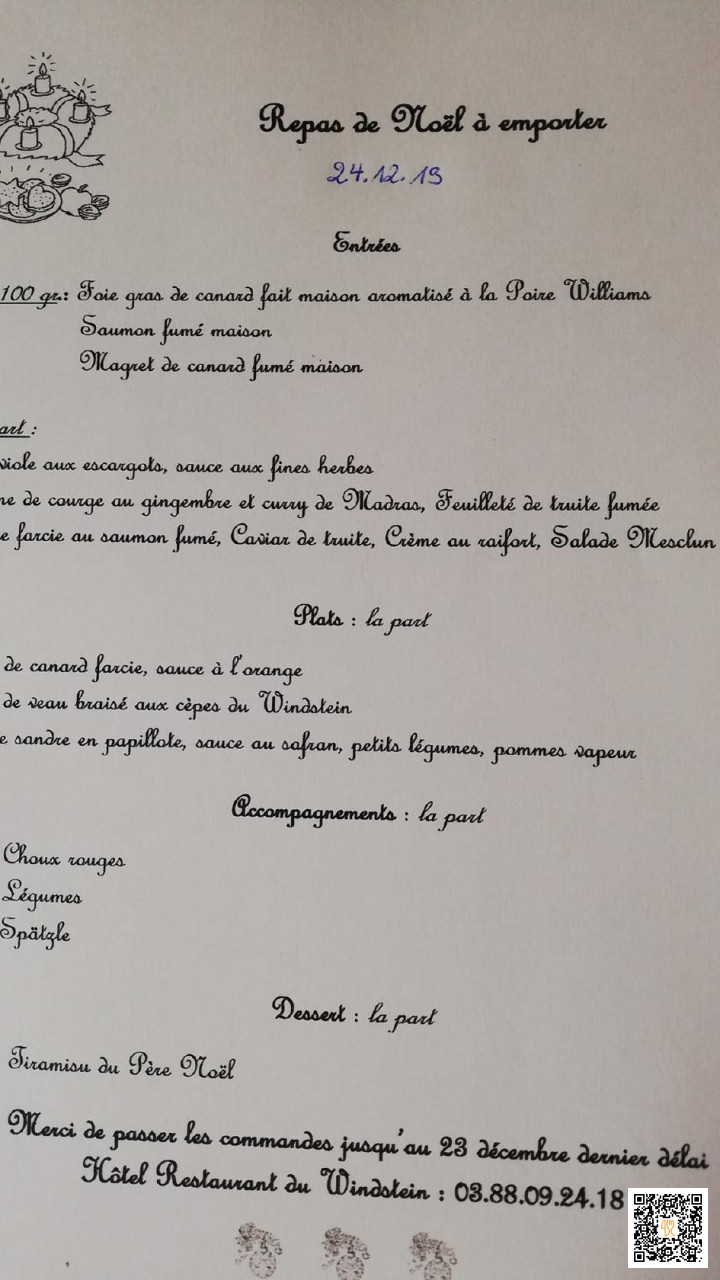 Repas de Noël à emporter
24.12.19
Entrées
100 gr.: Foie gras de canard fait maison aromatisé à la Poire Williams
Saumon fumé maison
Magret de canard fumé maison
art :
viole aux escargots, sauce aux fines herbes
de courge au gingembre et curry de Madras, Feuilleté de truite fumée
farcie au saumon fumé, Caviar de truite, Crème au raifort, Salade Mesclun
Plats : la part
de canard farcie, sauce à l'orange
de veau braisé aux cèpes du Windstein
sandre en papillote, sauce au safran, petits légumes, pommes vapeur
Accompagnements : la part
Choux rouges
Légumes
Spätzle
Dessert : la part
Tiramisu du Père Noël
Merci de passer les commandes jusqu'au 23 décembre dernier délai
Hôtel Restaurant du Windstein : 03.88.09.24.18